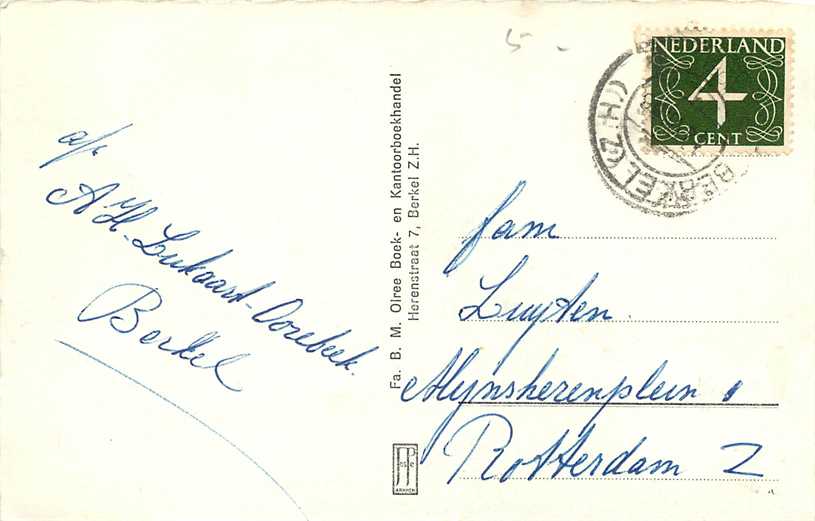 5 -
NEDERLAND
4
CENT
BERKEL (Z.H.)
a/c
A H. Lukaart-Oorebeek.
Berkel
Fa. B. M. Olree Boek- en Kantoorboekhandel
Herenstraat 7, Berkel Z.H.
fam
Luyten
Mijnsherenplein 1
Rotterdam Z